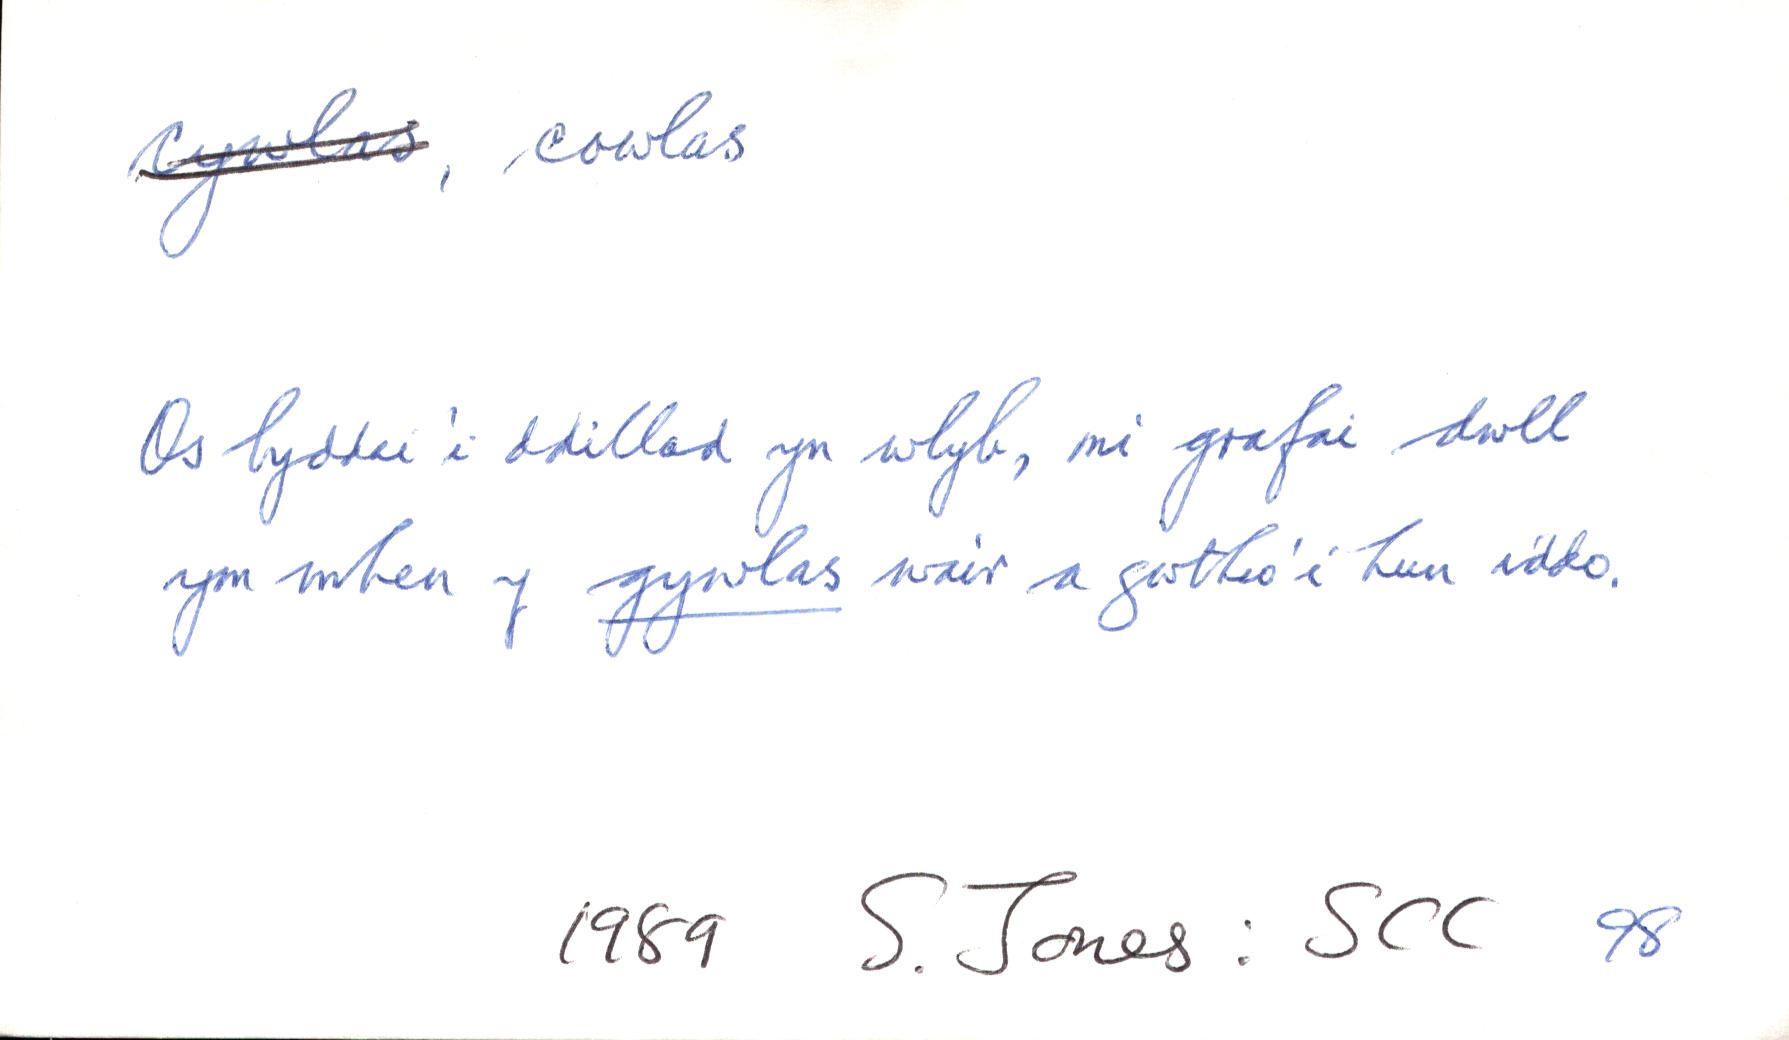 cywlas, cowlas
Os byddai'i ddillad yn wlyb, mi grafai dwll
ym mhen y gywlas wair a gwthio'i hun iddo.
1989 S. Jones: SCC 98